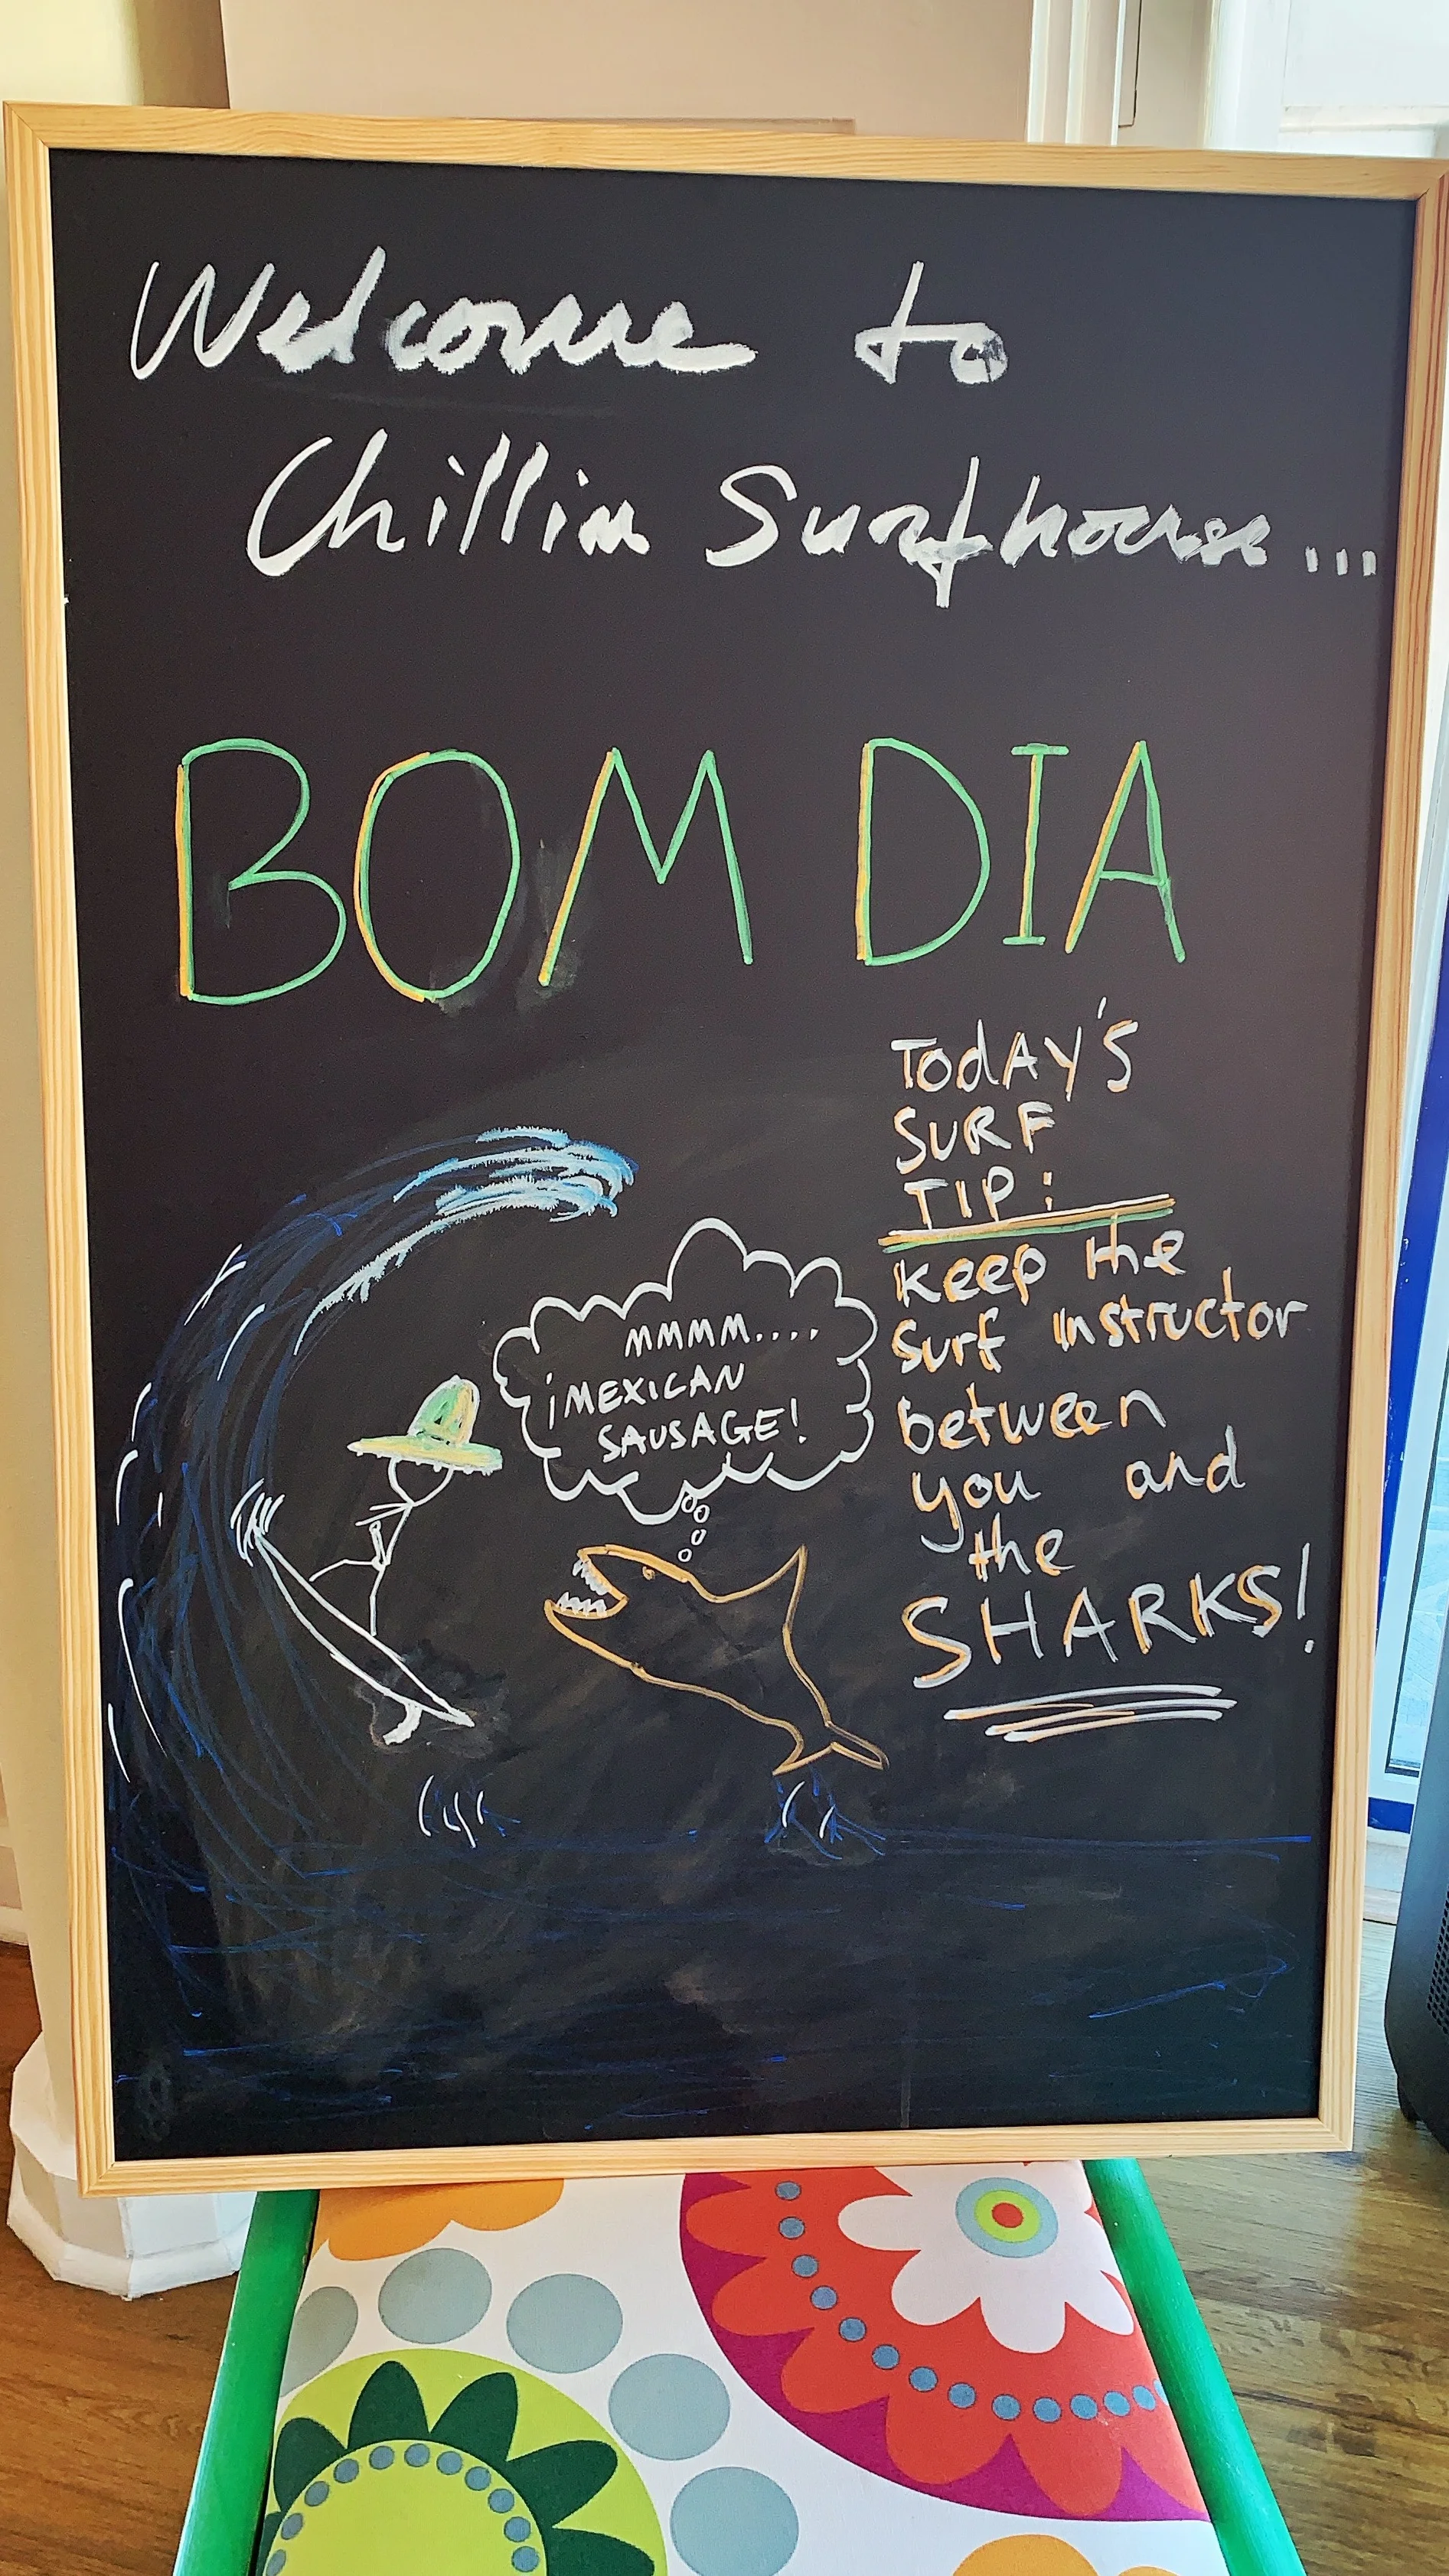 Welcome to
Chillin Surfhouse...
BOM DIA
TodAY'S
SURF
TIP:
Keep the
Surf Instructor
between
you and
the
SHARKS!
MMMM....
¡MEXICAN
SAUSAGE!